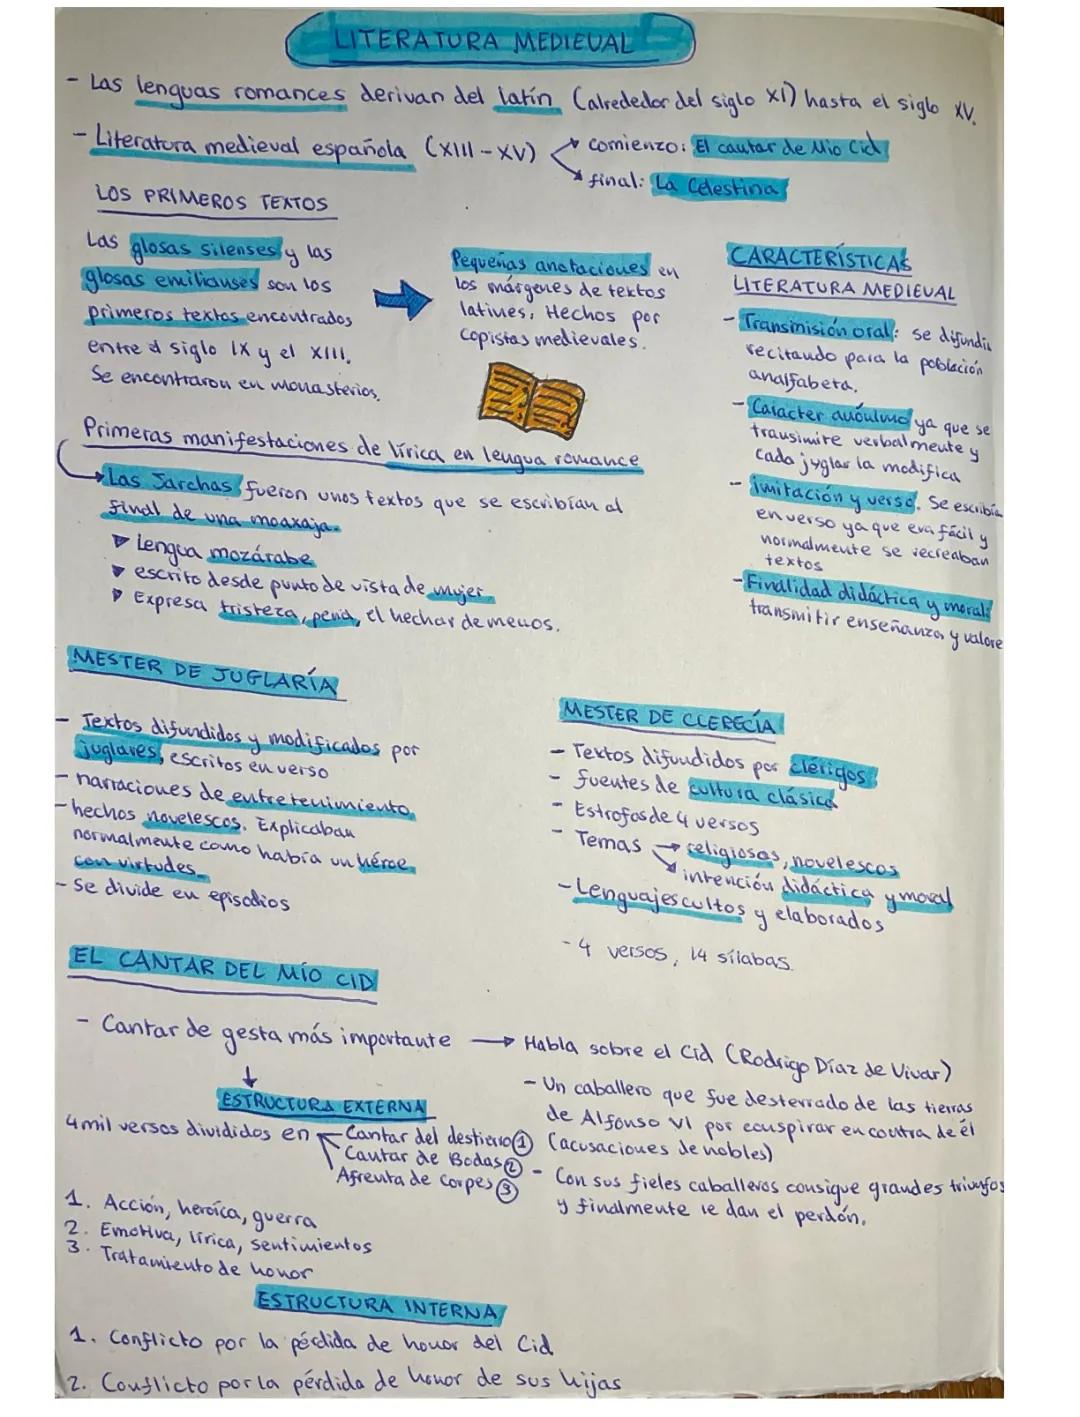 LITERATURA MEDIEVAL
- Las lenguas romances derivan del latín (alrededor del siglo XI) hasta el siglo XV.
- Literatura medieval española (XIII - XV)
comienzo: El cantar de Mio Cid
final: La Celestina
LOS PRIMEROS TEXTOS
Las glosas silenses y las
glosas emilianses son los
primeros textos encontrados
entre el siglo IX y el XIII.
Se encontraron en monasterios.
Pequeñas anotaciones en
los márgenes de textos
latines, Hechos por
copistas medievales.
CARACTERÍSTICAS
LITERATURA MEDIEVAL
- Transmisión oral: se difundía
recitando para la población
analfabeta.
- Carácter anónimo ya que se
transimite verbalmente y
cada juglar la modifica
- imitación y verso. Se escribía
en verso ya que era fácil y
normalmente se recreaban
textos
- Finalidad didáctica y moral:
transmitir enseñanza y valore
Primeras manifestaciones de lírica en lengua romance
Las Jarchas fueron unos textos que se escribían al
final de una moaxaja.
Lengua mozárabe
escrito desde punto de vista de mujer.
Expresa tristeza, pena, el hechar de menos.
MESTER DE JUGLARÍA
- Textos difundidos y modificados por
juglares, escritos en verso
- narraciones de entretenimiento
- hechos novelescos. Explicaban
normalmente como había un héroe
con virtudes.
- Se divide en episodios
MESTER DE CLERECÍA
- Textos difundidos por clérigos
- fuentes de cultura clásica
- Estrofas de 4 versos
- Temas → religiosos, novelescos
intención didáctica y moral
- Lenguajes cultos y elaborados
- 4 versos, 14 sílabas.
EL CANTAR DEL MÍO CID
- Cantar de gesta más importante → Habla sobre el Cid (Rodrigo Díaz de Vivar)
- Un caballero que fue desterrado de las tierras
de Alfonso VI por conspirar en contra de él
(acusaciones de nobles)
- Con sus fieles caballeros consigue grandes triunfos
y finalmente le dan el perdón.
ESTRUCTURA EXTERNA
4 mil versos divididos en
Cantar del destierro 1
Cantar de Bodas 2
Afrenta de corpes 3
1. Acción, heroíca, guerra
2. Emotiva, lírica, sentimientos
3. Tratamiento de honor
ESTRUCTURA INTERNA
1. Conflicto por la pérdida de honor del Cid
2. Conflicto por la pérdida de honor de sus hijas